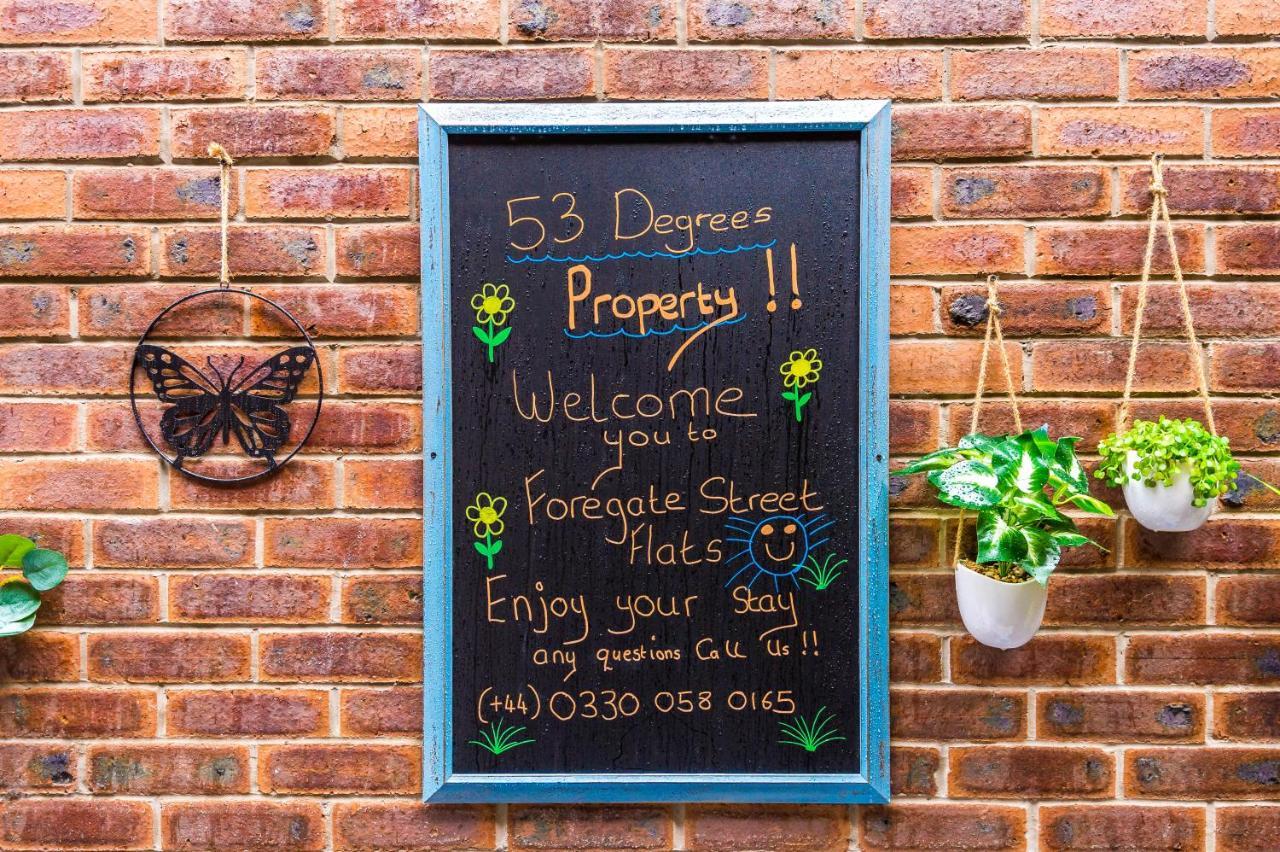 53 Degrees
Property !!
Welcome
you to
Foregate Street
Flats
Enjoy your Stay
any questions Call Us !!
(+44) 0330 058 0165